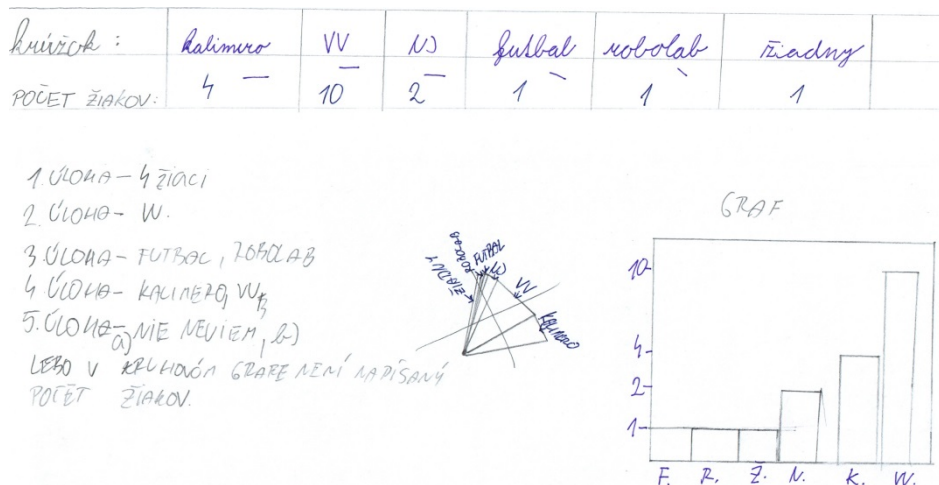 krúžok: kalimero VV NJ futbal robolab žiadny
POČET ŽIAKOV: 4 10 2 1 1 1
1. ÚLOHA – 4 ŽIACI
2. ÚLOHA – VV.
3. ÚLOHA – FUTBAL, ROBOLAB
4. ÚLOHA – KALIMERO, VV
5. ÚLOHA – a) NIE NEVIEM, b)
LEBO V KRUHOVÓM GRAFE NENÍ NAPÍSANÝ
POČET ŽIAKOV.
ŽIADNY
ROBOLAB
FUTBAL
NJ
VV
KALIMERO
GRAF
10
4
2
1
F. R. Ž. N. K. VV.